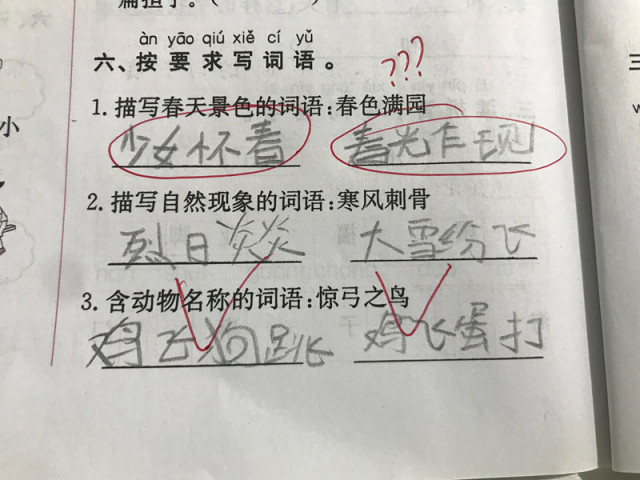 àn yāo qiú xiě cí yǔ
六、按要求写词语。
???
1.描写春天景色的词语:春色满园
少女怀春 春光乍现
小
2.描写自然现象的词语:寒风刺骨
烈日炎炎 大雪纷飞
3.含动物名称的词语:惊弓之鸟
鸡飞狗跳 鸡飞蛋打
三